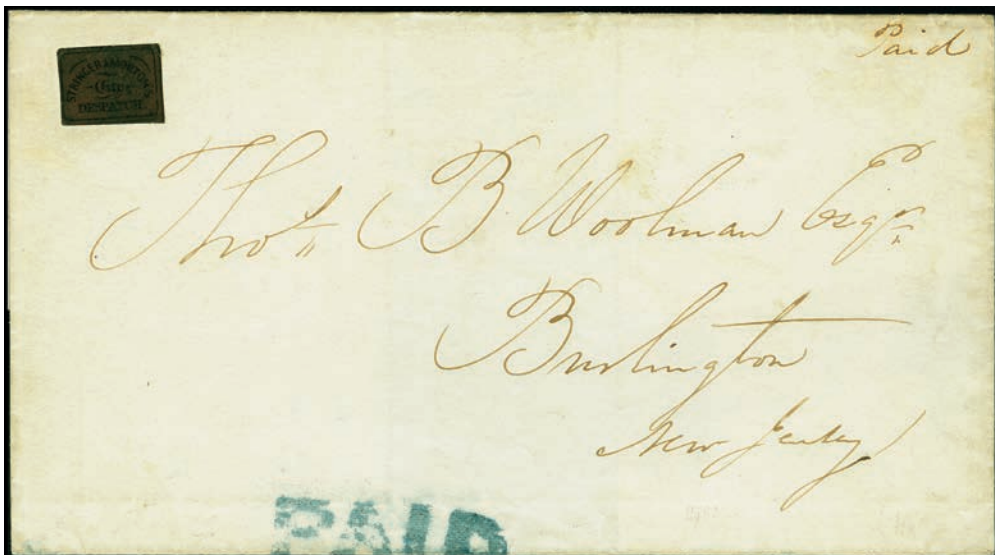 Paid
STRINGER & MORTON'S
City
DESPATCH
Thos B Woolman Esqr
Burlington
New Jersey
PAID